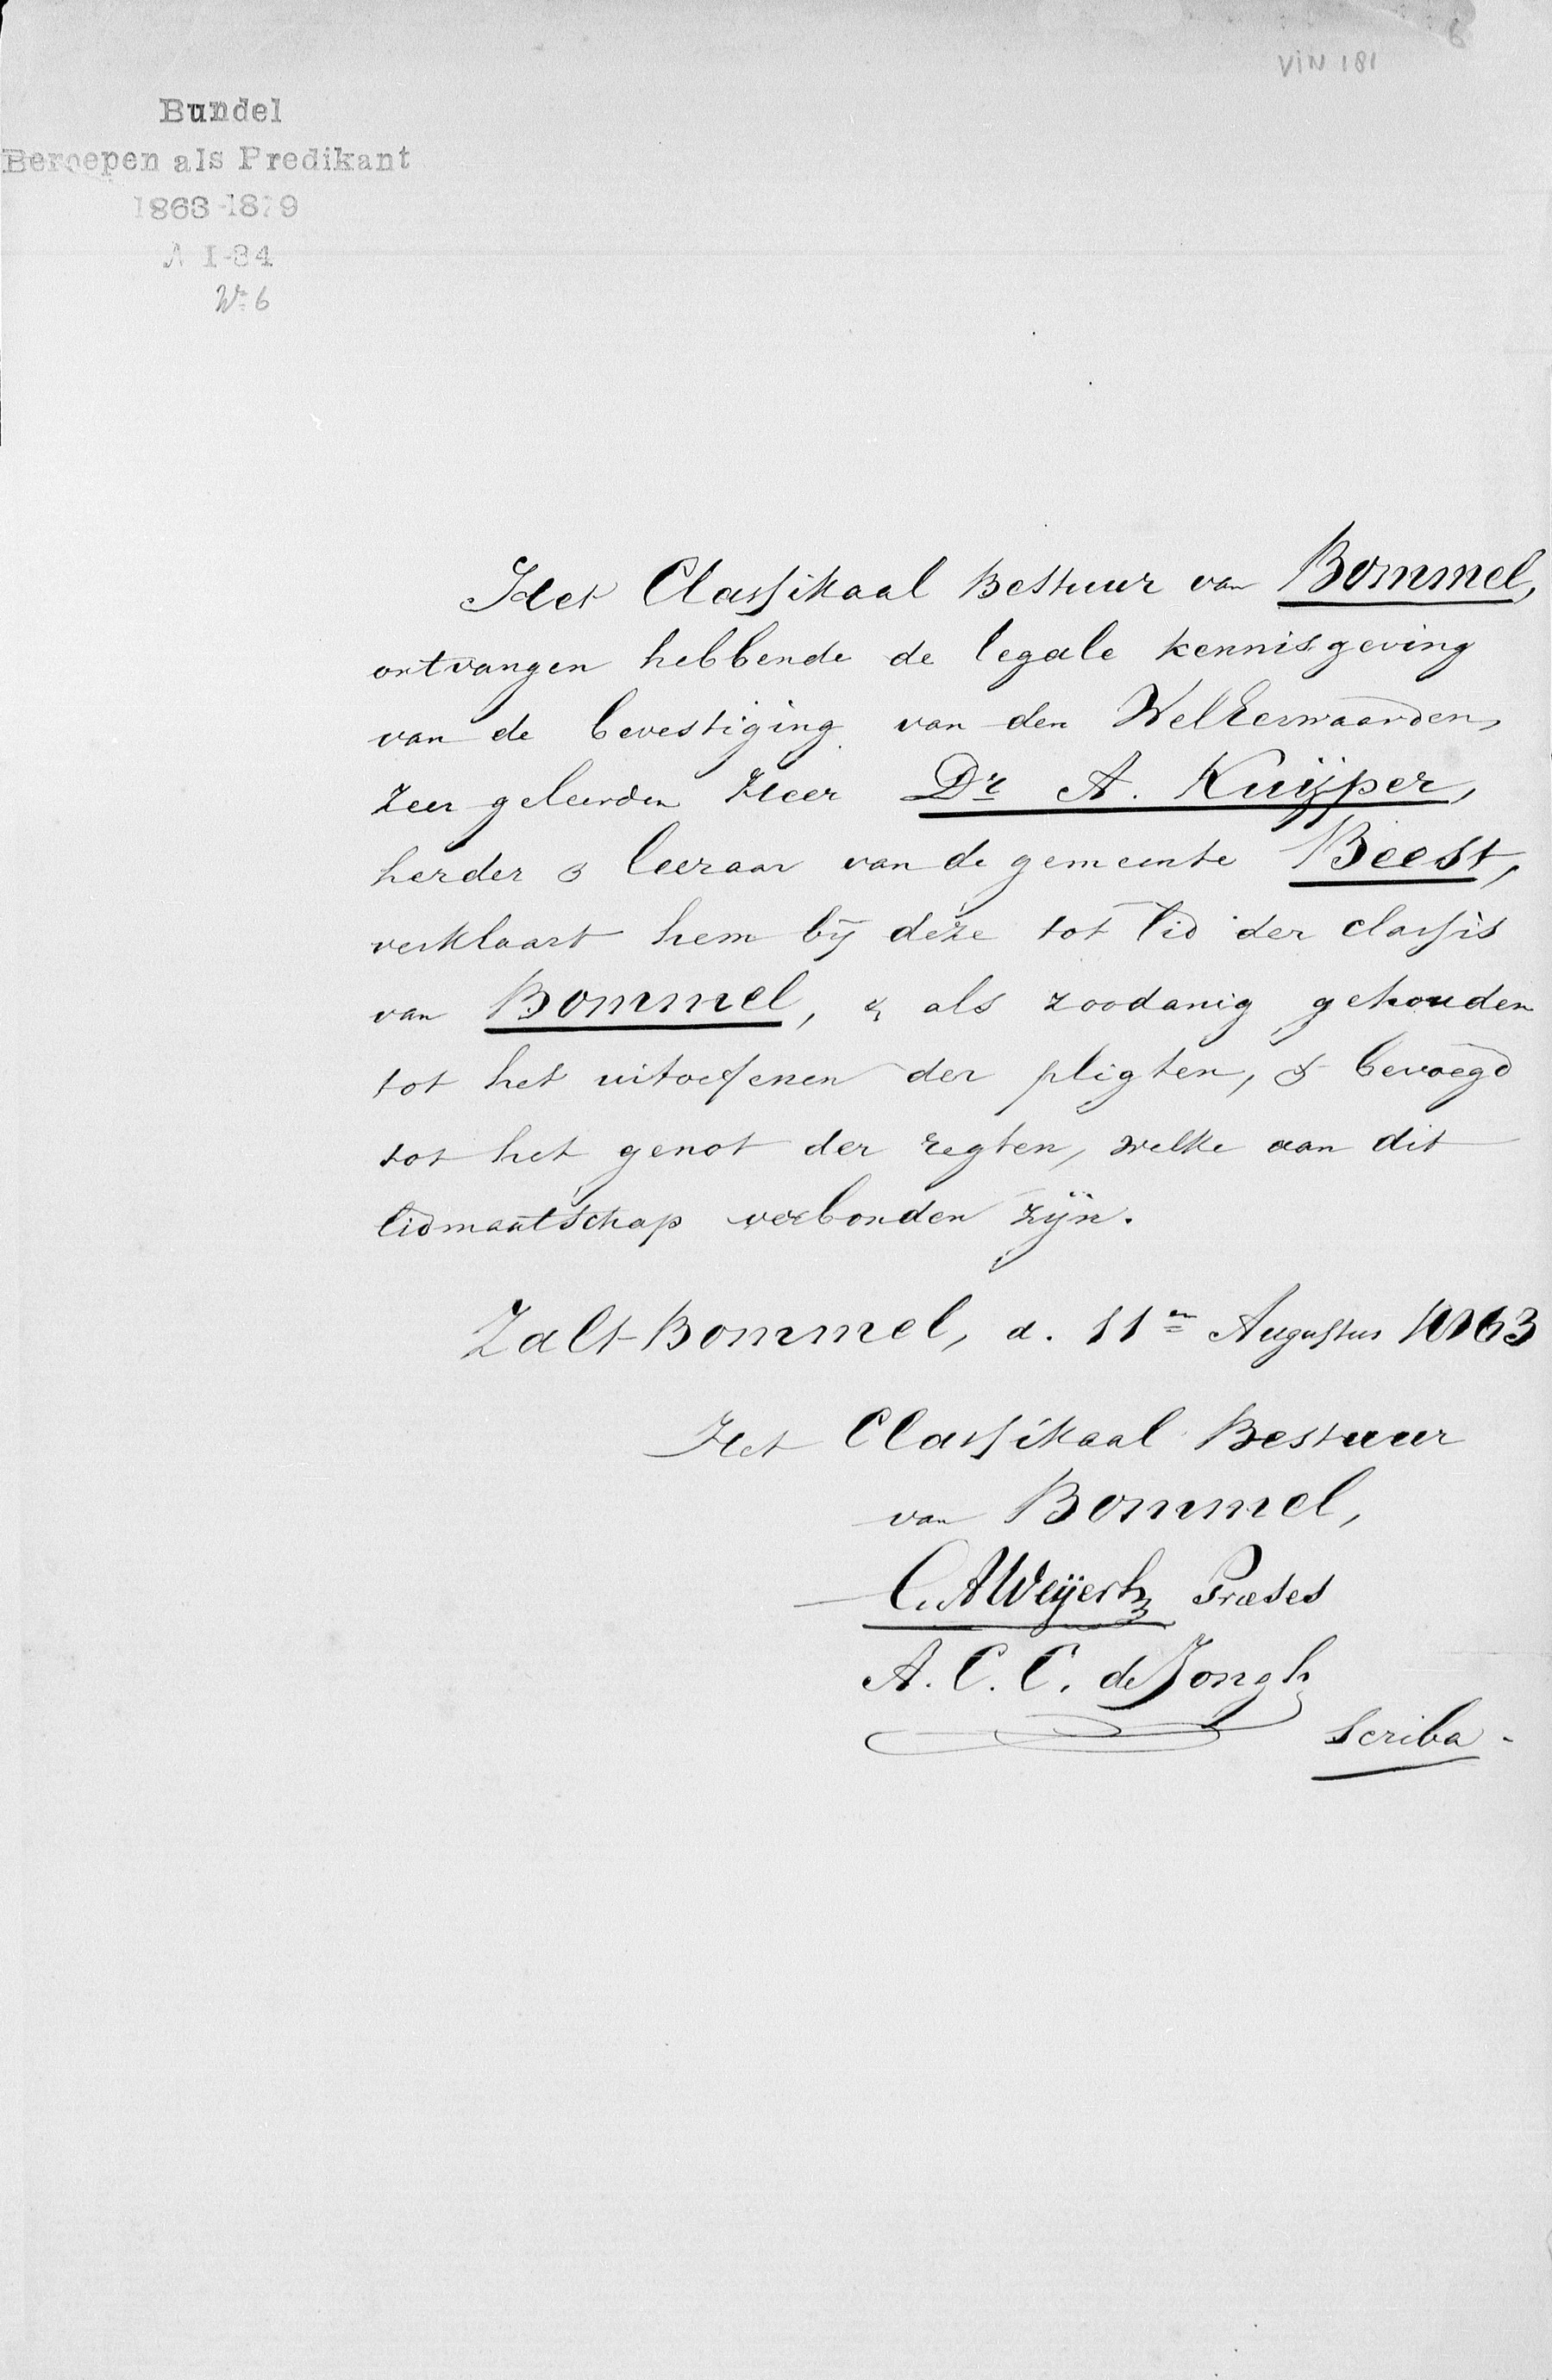 6
VIN 181
Bundel
Beroepen als Predikant
1863-1879
A I-34
No 6
Het Classikaal Bestuur van Bommel,
ontvangen hebbende de legale kennisgeving
van de bevestiging van den WelEerwaarden,
Zeer geleerden Heer Dr A. Kuijper,
herder & leeraar van de gemeente Beest,
verklaart hem bij deze tot lid der classis
van Bommel, & als zoodanig gehouden
tot het uitoefenen der pligten, & bevoegd
tot het genot der regten, welke aan dit
lidmaatschap verbonden zijn.
Zalt-Bommel, d. 11en Augustus 1863
Het Classikaal Bestuur
van Bommel,
C. A Weijerh Præses
A. C. C. de Jongh
Scriba.